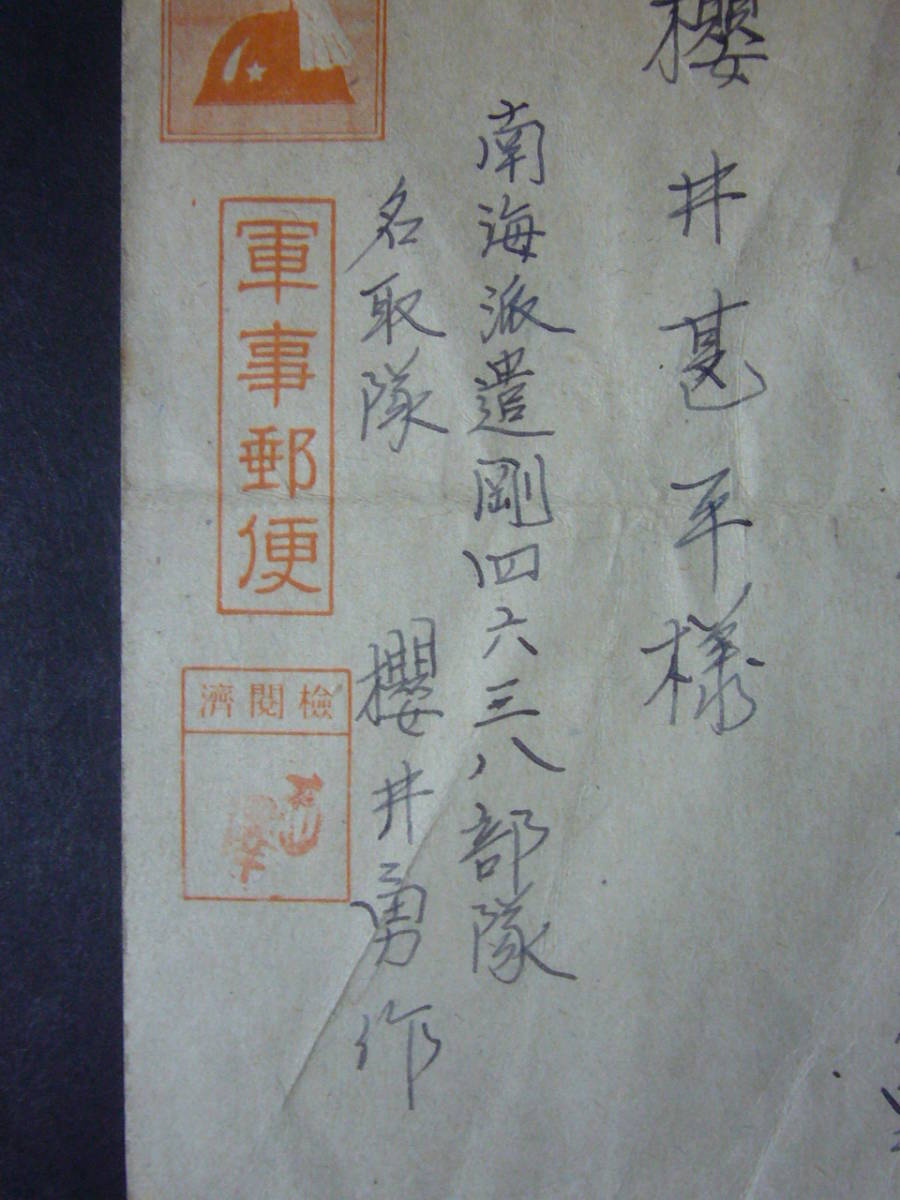 櫻井甚平様
南海派遣剛四六三八部隊
名取隊 櫻井勇作
軍事郵便
濟閲檢